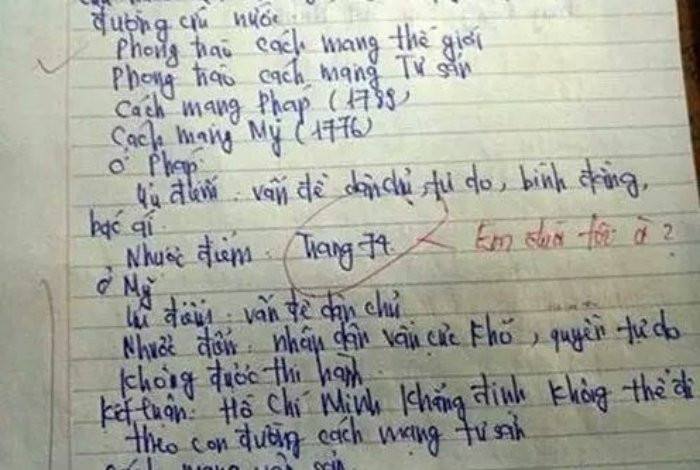 đường cứu nước
Phong trào cách mạng thế giới
Phong trào cách mạng Tư sản
Cách mạng Pháp (1789)
Cách mạng Mỹ (1776)
Ở Pháp
Ưu điểm: vấn đề dân chủ, tự do, bình đẳng,
bác ái
Nhược điểm: Trang 74. Em đùa tôi à?
Ở Mỹ
Ưu điểm: vấn đề dân chủ
Nhược điểm: nhân dân vẫn cực khổ, quyền tự do
không được thi hành
Kết luận: Hồ Chí Minh khẳng định không thể đi
theo con đường cách mạng tư sản
cách mạng vô sản.